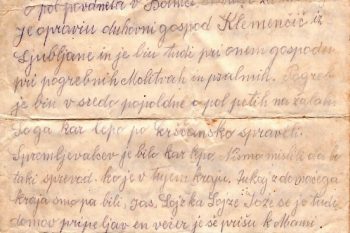 o pol
je opraviu duhovni gospod Klemenčič iz
Ljubljane in je biu tudi pri onem gospodu
pri pogrebnih Molitvah in psalmih. Pogreb
je biu v sredo popoldne o pol petih na
Soga kar lepo po krščansko spravili.
Spremljevalcev je bilo kar lepo. Nismo mislili da bo
taki sprevod. ko je v tujem kraju. Tukaj z domačega
kraja smo pa bili, jas, Lojzka Lojze Jože se je tudi
domov pripeljav en večer je še prišu k Mami.